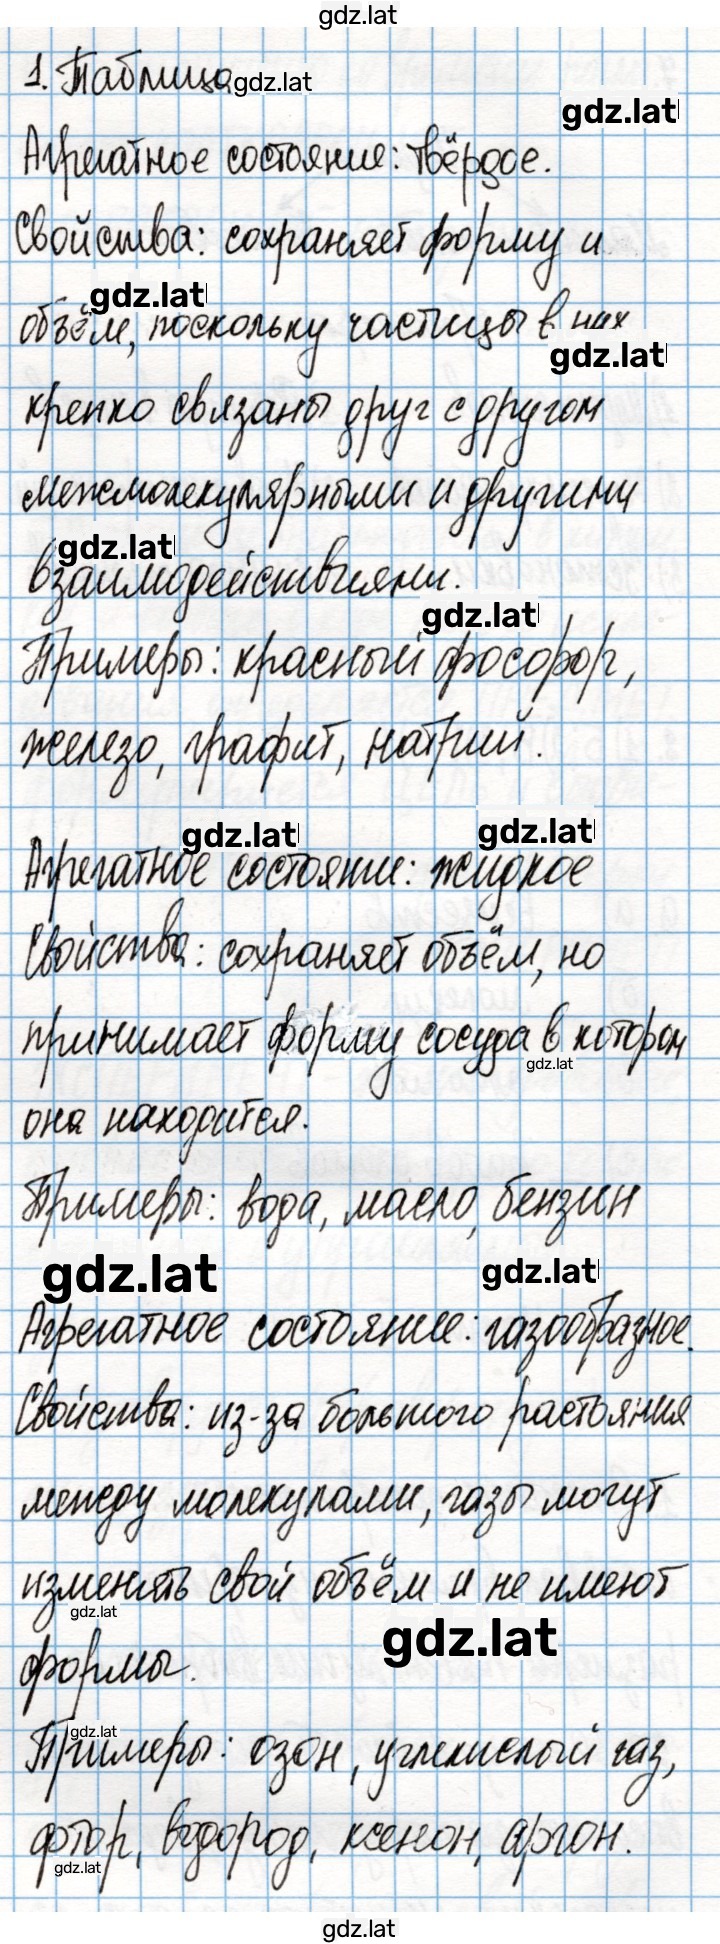 gdz.lat
1. Таблица
gdz.lat
gdz.lat
Агрегатное состояние: твёрдое.
Свойства: сохраняет форму и
gdz.lat
объём, поскольку частицы в них
gdz.lat
крепко связаны друг с другом
межмолекулярными и другими
gdz.lat
взаимодействиями.
gdz.lat
Примеры: красный фосфор,
железо, графит, натрий.
gdz.lat
gdz.lat
Агрегатное состояние: жидкое
Свойства: сохраняет объём, но
принимает форму сосуда в котором
gdz.lat
она находится.
Примеры: вода, масло, бензин
gdz.lat
gdz.lat
Агрегатное состояние: газообразное.
Свойства: из-за большого растояния
между молекулами, газы могут
изменять свой объём и не имеют
gdz.lat
gdz.lat
формы.
gdz.lat
Примеры: озон, углекислый газ,
фтор, водород, ксенон, аргон.
gdz.lat
gdz.lat